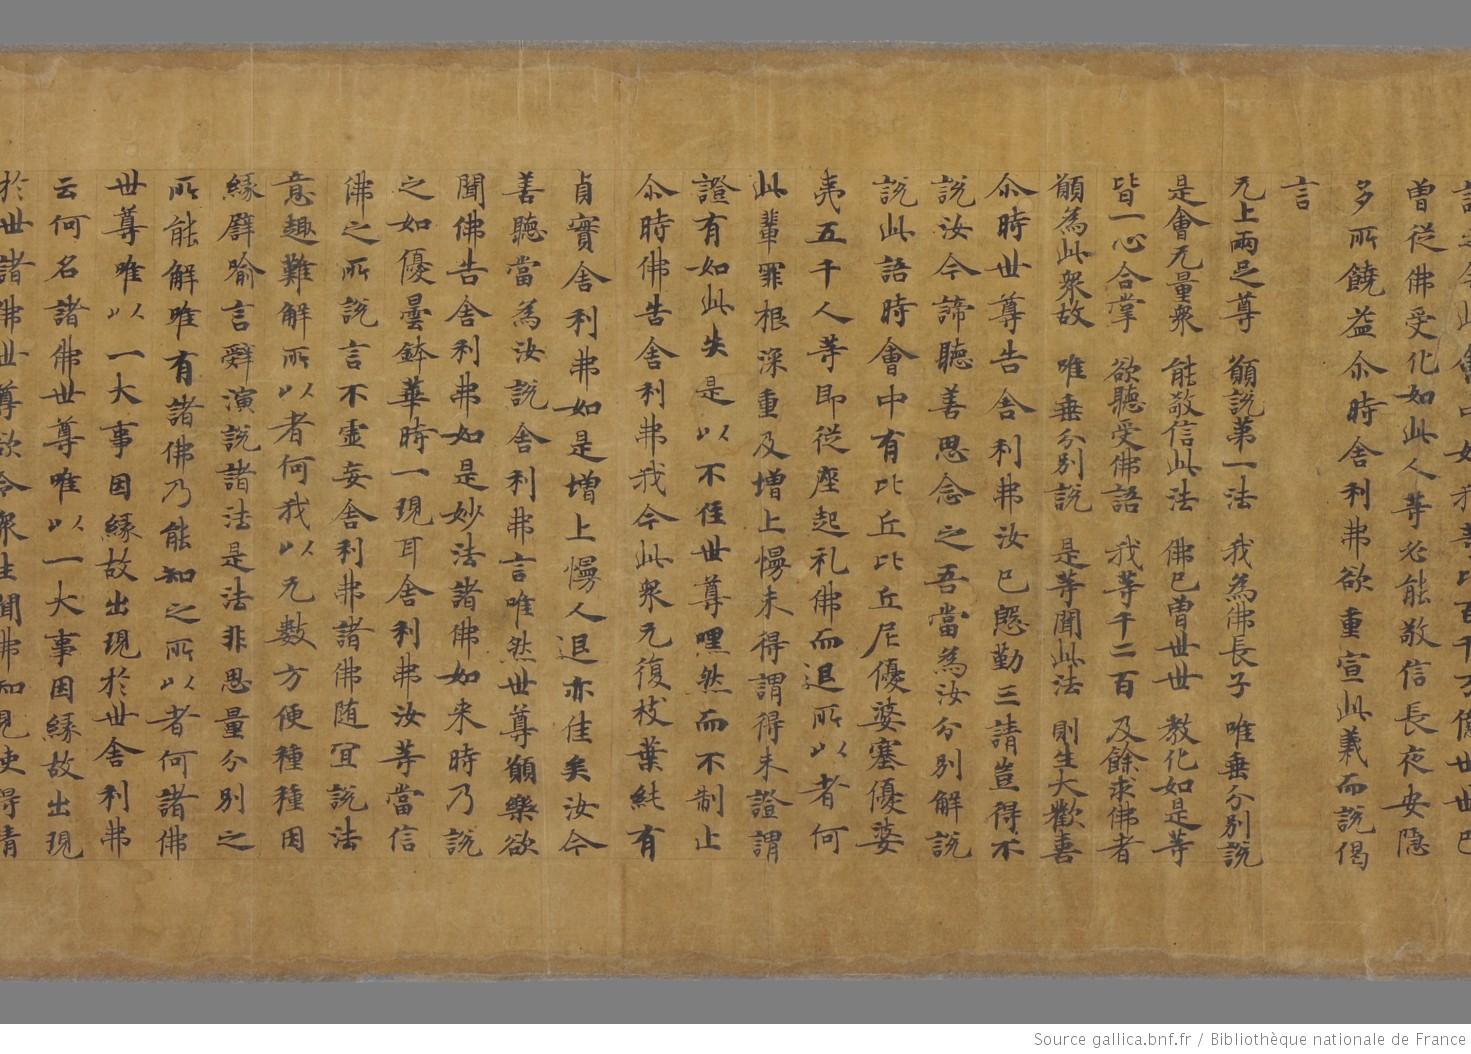 會中如我等比百千万億世世已
曽従佛受化如此人等必能敬信長夜安隱
多所饒益尒時舍利弗欲重宣此義而說偈
言
无上兩足尊 願說第一法 我為佛長子 唯垂分別說
是會无量衆 能敬信此法 佛已曽世世 教化如是等
皆一心合掌 欲聽受佛語 我等千二百 及餘求佛者
願為此衆故 唯垂分別說 是等聞此法 則生大歡喜
尒時世尊告舍利弗汝已慇勤三請豈得不
說汝今諦聽善思念之吾當為汝分別解說
說此語時會中有比丘比丘尼優婆塞優婆
夷五千人等即従座起礼佛而退所以者何
此輩罪根深重及増上慢未得謂得未證謂
證有如此失是以不住世尊嘿然而不制止
尒時佛告舍利弗我今此衆无復枝葉純有
貞實舍利弗如是増上慢人退亦佳矣汝今
善聽當為汝說舍利弗言唯然世尊願樂欲
聞佛告舍利弗如是妙法諸佛如来時乃說
之如優曇鉢華時一現耳舍利弗汝等當信
佛之所說言不虛妄舍利弗諸佛随宜說法
意趣難解所以者何我以无數方便種種因
緣譬喻言辭演說諸法是法非思量分別之
所能解唯有諸佛乃能知之所以者何諸佛
世尊唯以一大事因緣故出現於世舍利弗
云何名諸佛世尊唯以一大事因緣故出現
於世諸佛世尊欲令衆生聞佛知見使得清
Source gallica.bnf.fr / Bibliothèque nationale de France